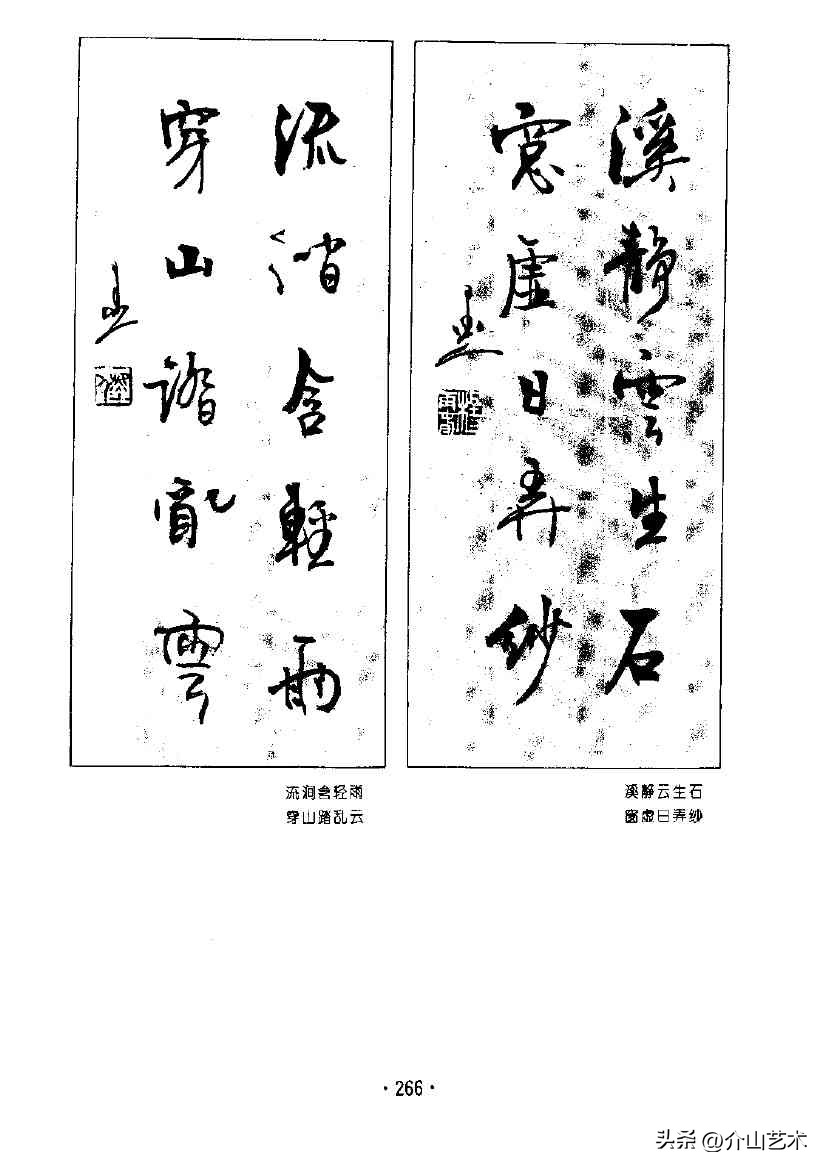 溪静雲生石
窓虚日弄紗
流澗含輕雨
穿山踏亂雲
溪静云生石
窗虚日弄纱
流涧含轻雨
穿山踏乱云
·266·
头条 @介山艺术